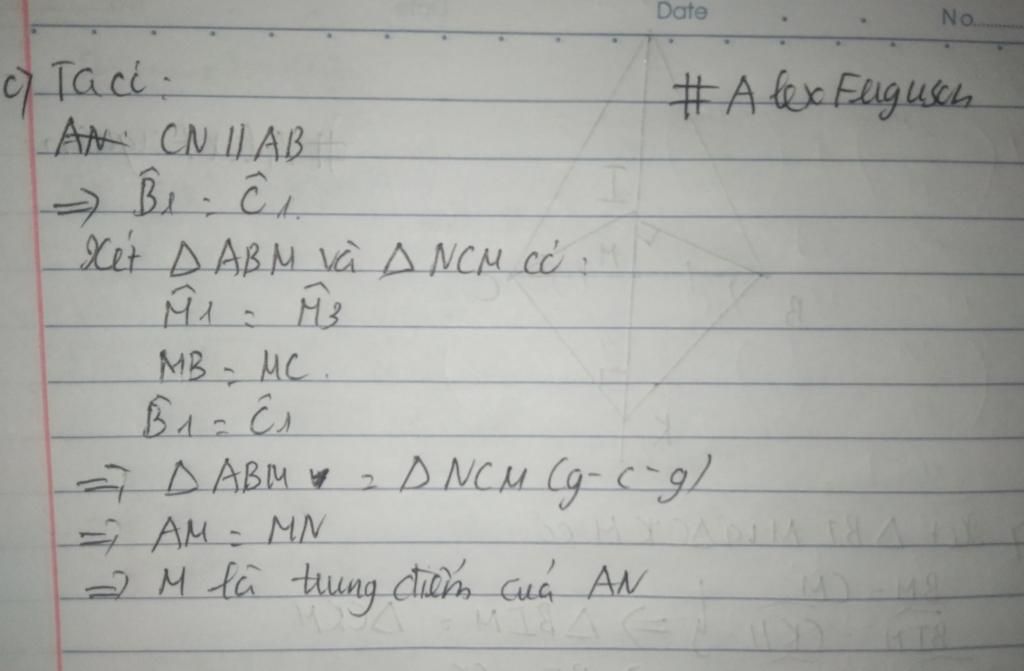 Date No.
c) Ta có: #AlexFerguson
AN CN // AB
=> B̂1 = Ĉ1.
Xét Δ ABM và Δ NCM có:
M̂1 = M̂3
MB = MC.
B̂1 = Ĉ1
=> Δ ABM = Δ NCM (g-c-g)
=> AM = MN
=> M là trung điểm của AN